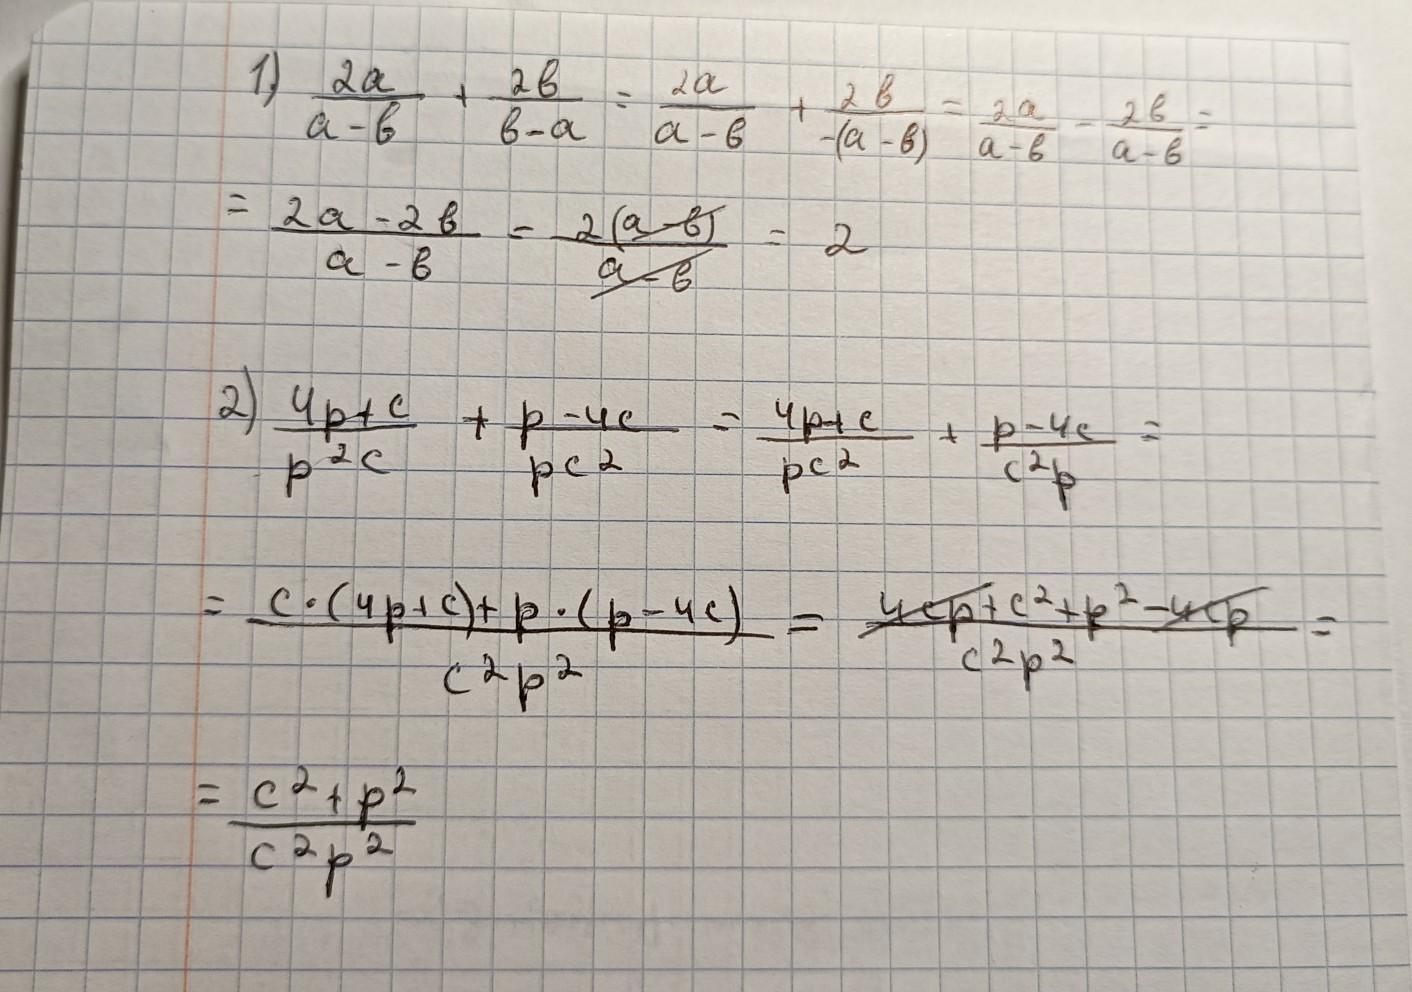 1) 2a/(a-в) + 2в/(в-a) = 2a/(a-в) + 2в/(-(a-в)) = 2a/(a-в) - 2в/(a-в) =
= (2a-2в)/(a-в) = 2(a-в)/(a-в) = 2
2) (4p+c)/(p²c) + (p-4c)/(pc²) = (4p+c)/(pc²) + (p-4c)/(c²p) =
= (c·(4p+c)+p·(p-4c))/(c²p²) = (4cp+c²+p²-4cp)/(c²p²) =
= (c²+p²)/(c²p²)